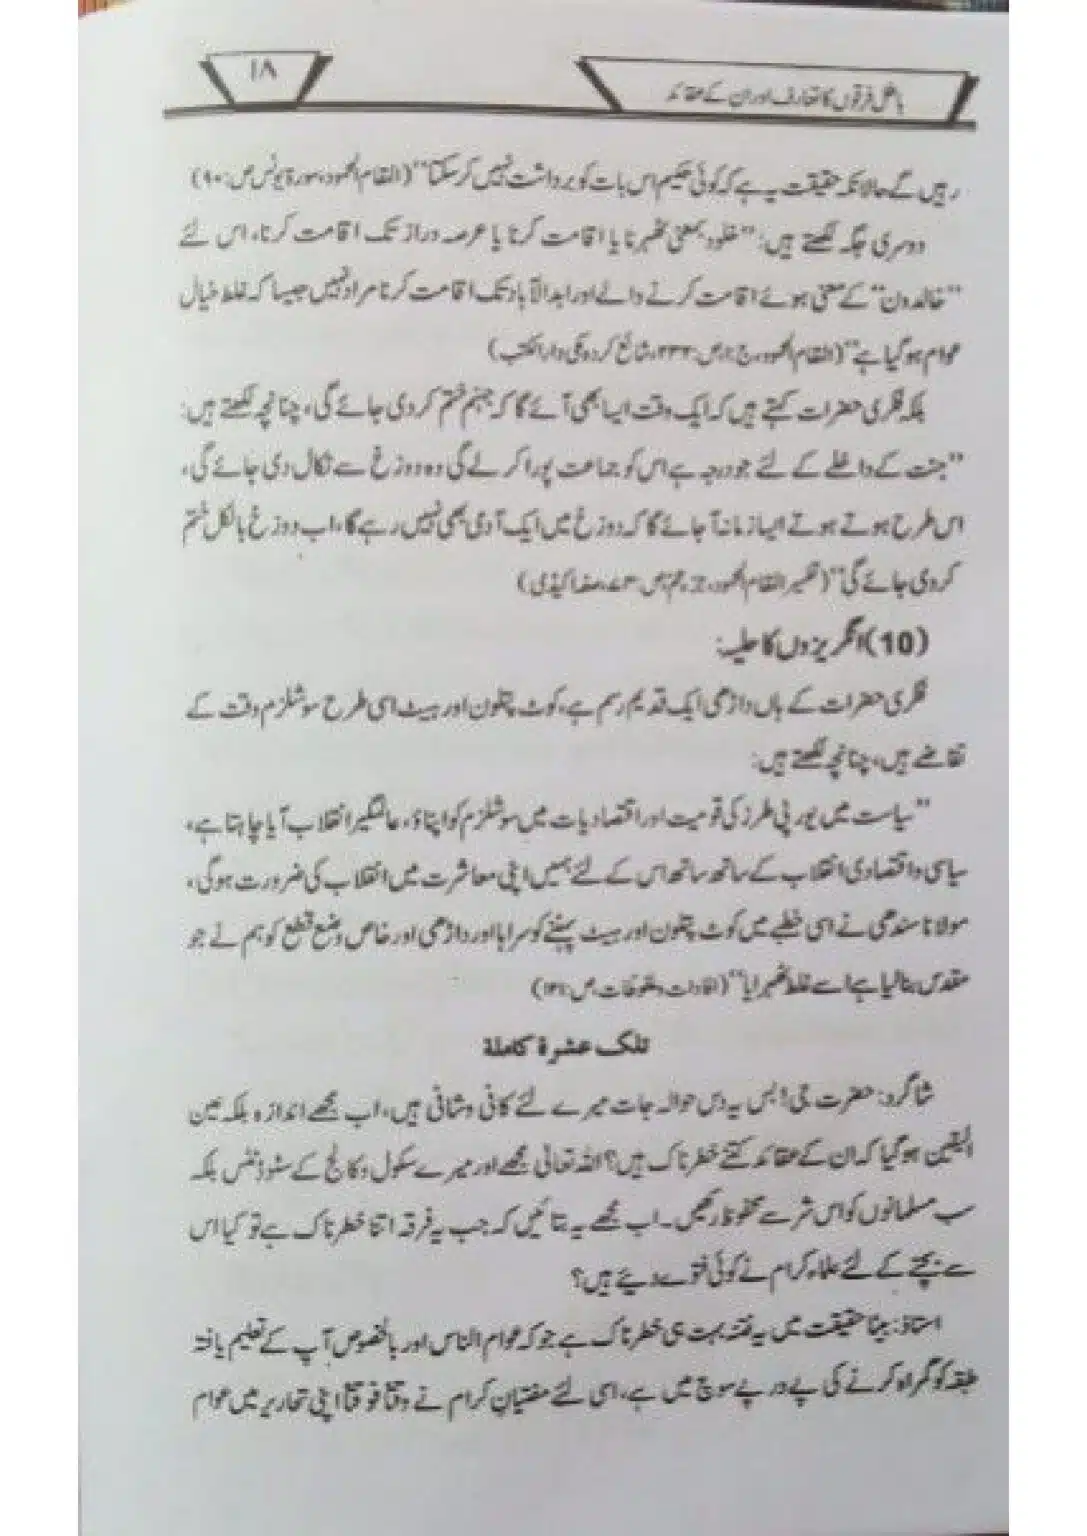 باطل فرقوں کا تعارف اور ان کے عقائد
۱۸
رہیں گے حالانکہ حقیقت یہ ہے کہ کوئی حکیم اس بات کو برداشت نہیں کر سکتا“ (المقام المحمود، سورۃ یونس ص:۹۰)
دوسری جگہ لکھتے ہیں: ”خلود بمعنی ٹھہرنا یا اقامت کرنا یا عرصہ دراز تک اقامت کرنا، اس لئے
”خالدون“ کے معنی ہوئے اقامت کرنے والے اور ابدالآباد تک اقامت کرنا مراد نہیں جیسا کہ غلط خیال
عوام ہو گیا ہے“ (المقام المحمود، ج:۱، ص:۲۳۲، شائع کردہ مکی دارالکتب)
بلکہ فکری حضرات کہتے ہیں کہ ایک وقت ایسا بھی آئے گا کہ جہنم ختم کردی جائے گی، چنانچہ لکھتے ہیں:
”جنت کے داخلے کے لئے جو درجہ ہے اس کو جماعت پورا کر لے گی وہ دوزخ سے نکال دی جائے گی،
اس طرح ہوتے ہوتے ایسا زمانہ آجائے گا کہ دوزخ میں ایک آدمی بھی نہیں رہے گا، اب دوزخ بالکل ختم
کردی جائے گی“ (تفسیر المقام المحمود، جز عم، ص:۷۳،
(10) انگریزوں کا حلیہ:
فکری حضرات کے ہاں داڑھی ایک قدیم رسم ہے، کوٹ پتلون اور ہیٹ اسی طرح سوشلزم وقت کے
تقاضے ہیں، چنانچہ لکھتے ہیں:
”سیاست میں یورپی طرز کی قومیت اور اقتصادیات میں سوشلزم کو اپناؤ، عالمگیر انقلاب آیا چاہتا ہے،
سیاسی و اقتصادی انقلاب کے ساتھ ساتھ اس کے لئے ہمیں اپنی معاشرت میں انقلاب کی ضرورت ہوگی،
مولانا سندھی نے اسی خطبے میں کوٹ پتلون اور ہیٹ پہننے کو سراہا اور داڑھی اور خاص وضع قطع کو ہم نے جو
مقدس بنالیا ہے اسے غلط ٹھہرایا“ (افادات و ملفوظات، ص:
تلك عشرة كاملة
شاگرد: حضرت جی! بس یہ دس حوالہ جات میرے لئے کافی و شافی ہیں، اب مجھے اندازہ بلکہ عین
الیقین ہوگیا کہ ان کے عقائد کتنے خطرناک ہیں؟ اللہ تعالی مجھے اور میرے سکول و کالج کے سٹوڈنٹس بلکہ
سب مسلمانوں کو اس شر سے محفوظ رکھیں۔ اب مجھے یہ بتائیں کہ جب یہ فرقہ اتنا خطرناک ہے تو کیا اس
سے بچنے کے لئے علماء کرام نے کوئی فتوے دیئے ہیں؟
استاذ: بیٹا حقیقت میں یہ فتنہ بہت ہی خطرناک ہے جو کہ عوام الناس اور بالخصوص آپ کے تعلیم یافتہ
طبقہ کو گمراہ کرنے کی پے در پے سوچ میں ہے، اسی لئے مفتیان کرام نے وقتاً فوقتاً اپنی تحاریر میں عوام